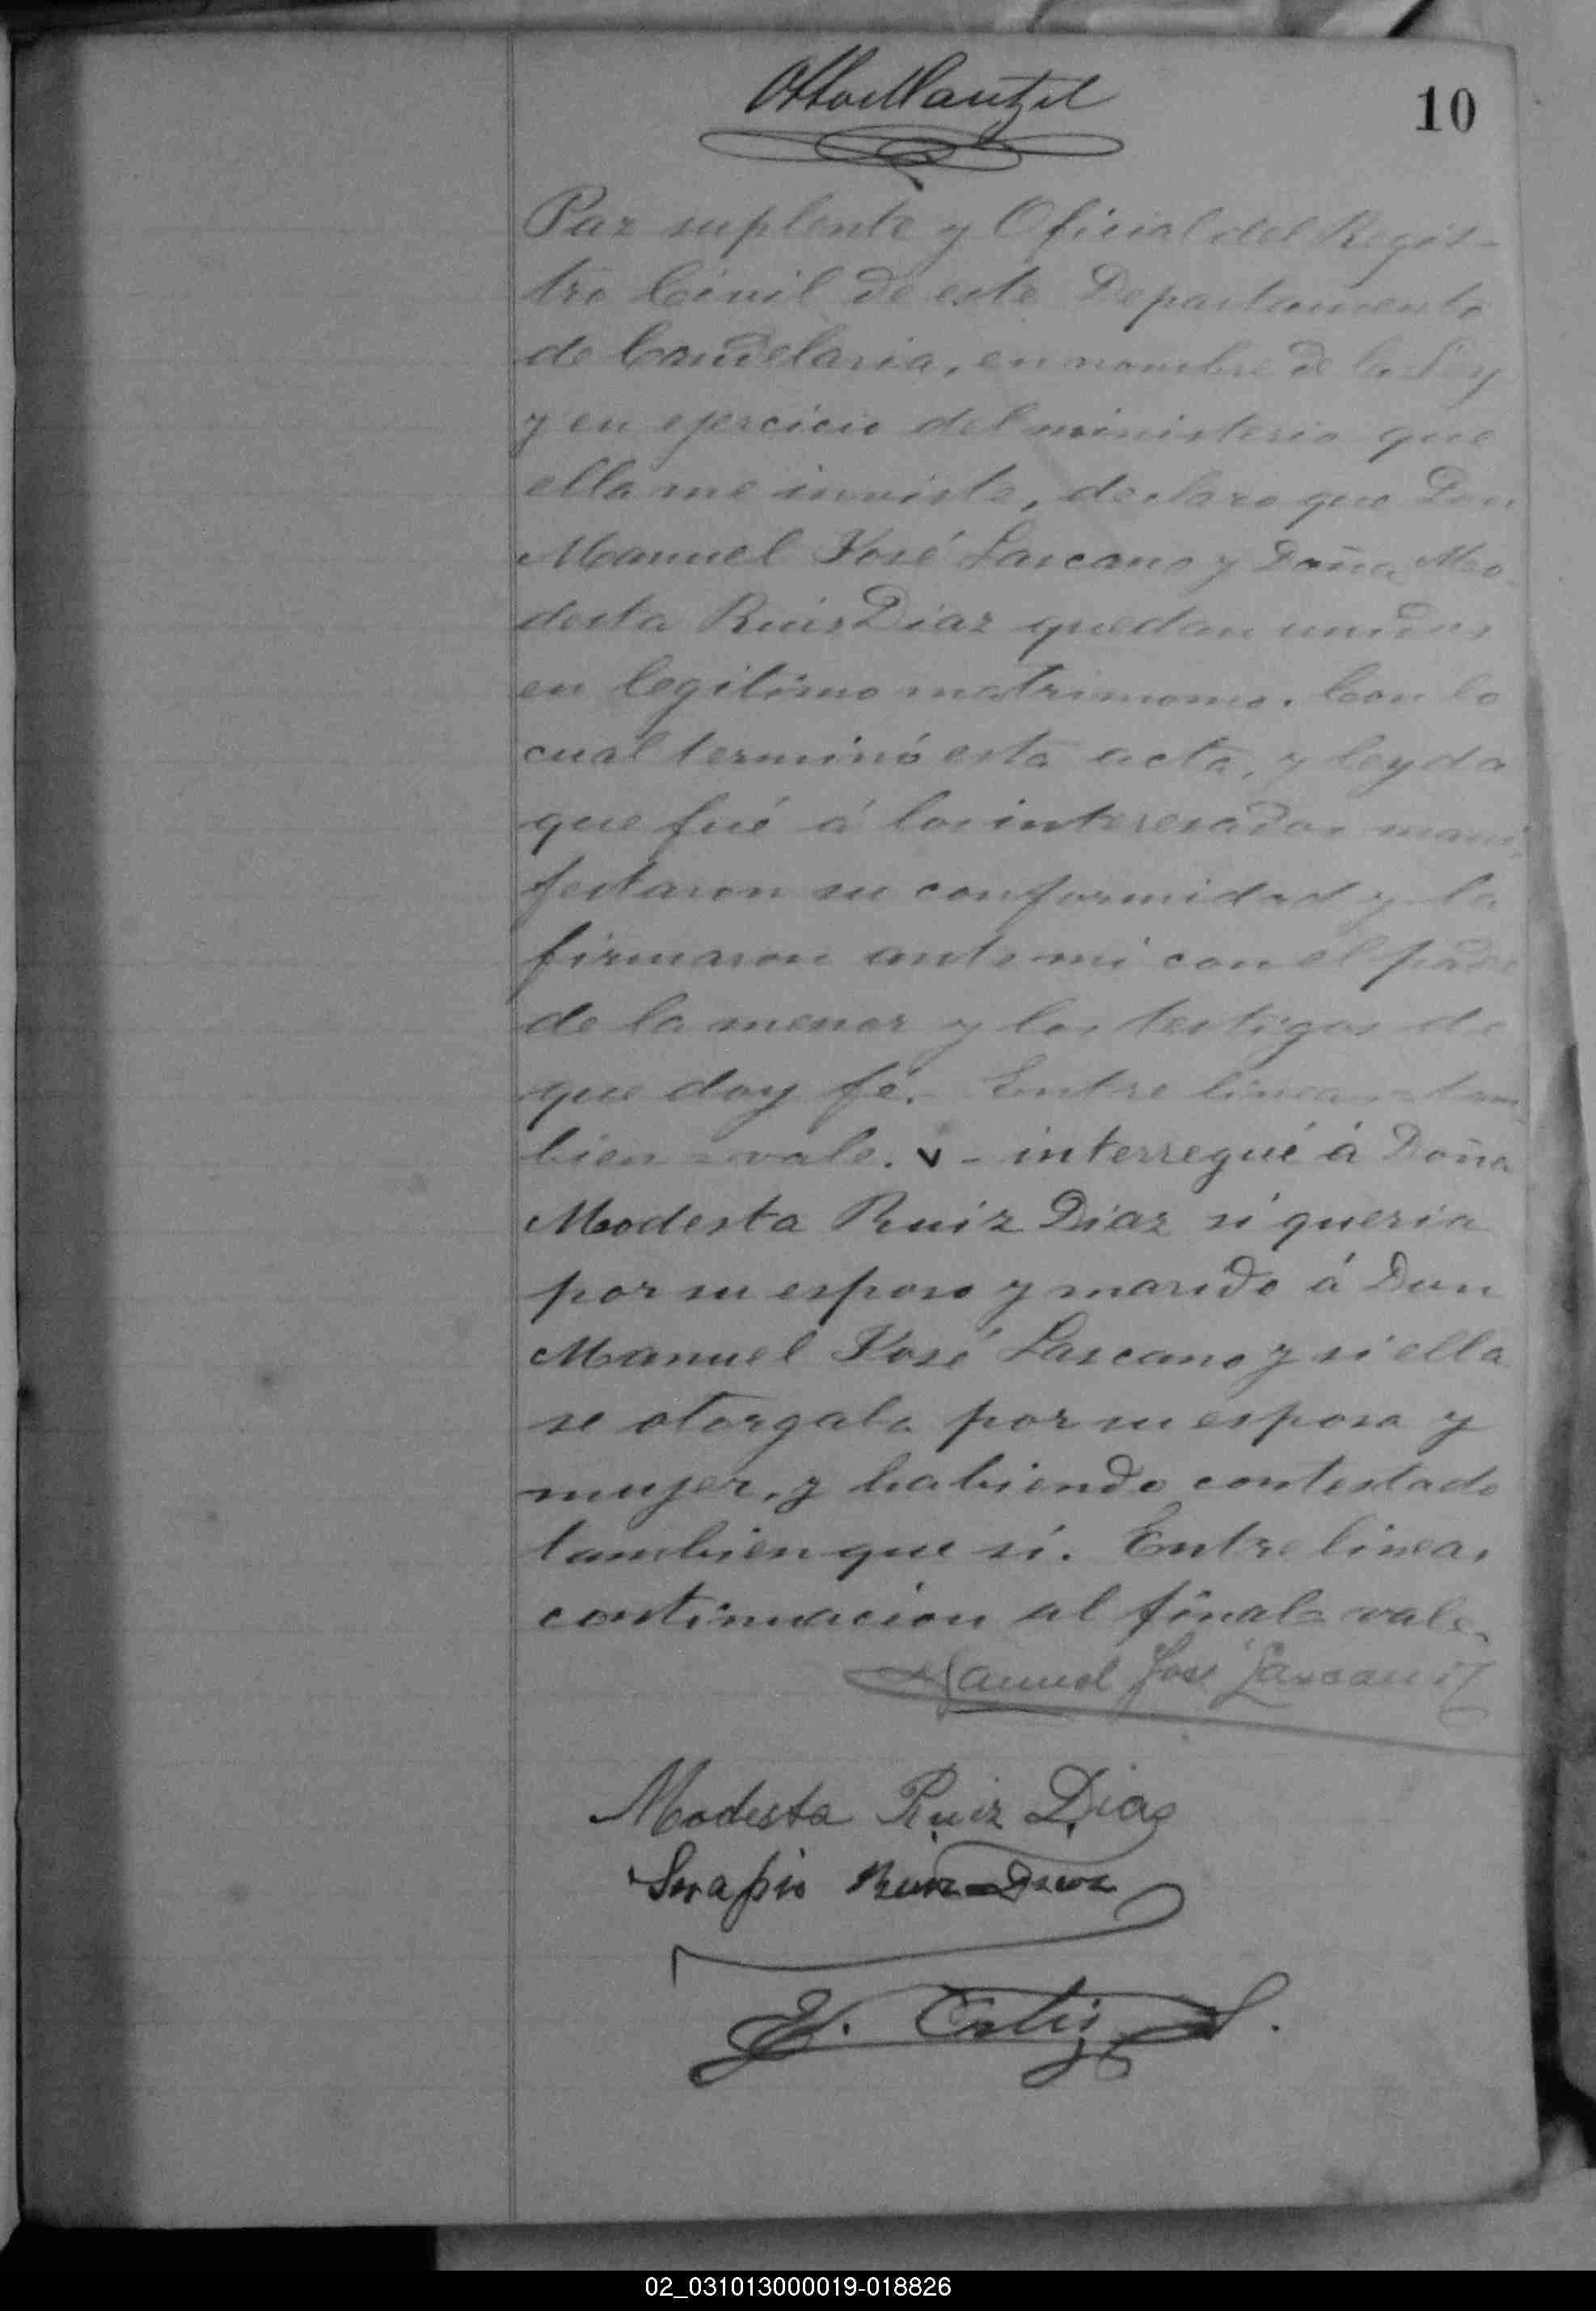 10
Paz suplente y Oficial del Regis-
tro Civil de este Departamento
de Candelaria, en nombre de la Ley
y en ejercicio del ministerio que
ella me inviste, declaro que Don
Manuel José Lascano y Doña Mo-
desta Ruiz Diaz quedan unidos
en legitimo matrimonio. Con lo
cual terminó esta acta, y leyda
que fué á los interesados mani-
festaron su conformidad y la
firmaron ante mi con el padre
de la menor y los testigos de
que doy fé. Entre lineas=tam
bien=vale. v - interregué á Doña
Modesta Ruiz Diaz si queria
por su esposo y marido á Don
Manuel José Lascano y si ella
se otorgaba por su esposa y
mujer, y habiendo contestado
tambien que sí. Entre linea,
continuacion al final=vale.
Manuel José Lascano
Modesta Ruiz Diaz
Serapio Ruiz-Diaz
E. Ortiz S.
02_031013000019-018826